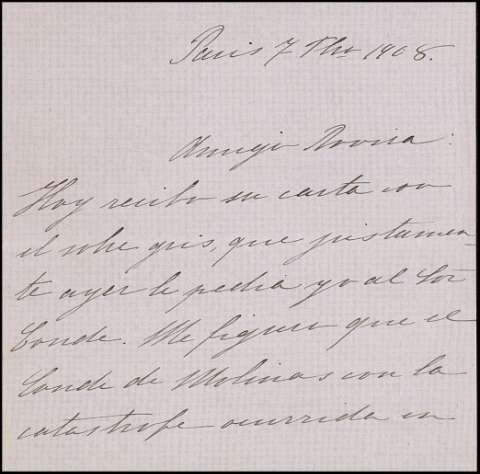 Paris 7 Fbro 1908.
Amigo Rovira:
Hoy recibo su carta con
el sobre gris, que justamen-
te ayer le pedia yo al Sor
Conde. Me figuro que el
Conde de Molinas con la
catastrofe ocurrida en